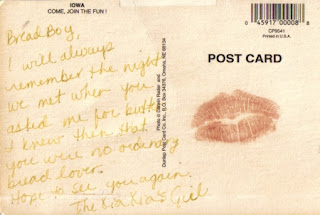 IOWA
COME, JOIN THE FUN !
0 45917 00008 8
CP5041
Printed in U.S.A.
Bread Boy,
I will always
remember the night
we met when you
asked me for butter.
I knew then that
you were no ordinary
bread lover.
Hope to see you again.
The Girl
POST CARD
Photo © Olsen Rader and
Dunlap Post Card Co. Inc., P.O. Box 34376, Omaha, NE 68134